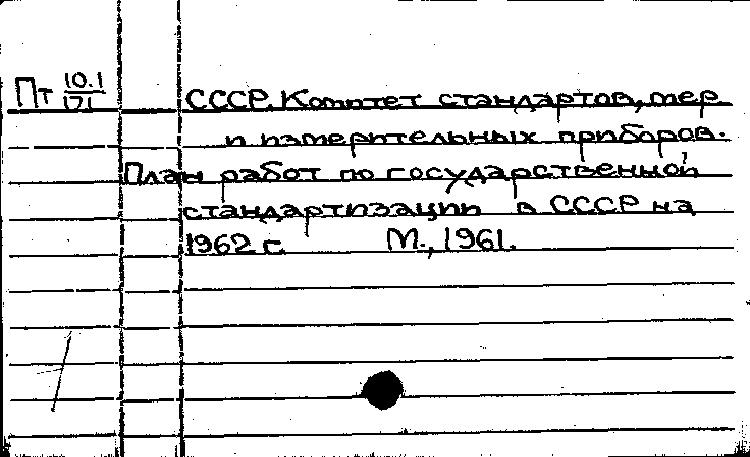 Пт 10.1
171
СССР. Комитет стандартов, мер
и измерительных приборов.
План работ по государственной
стандартизации в СССР на
1962 г. М., 1961.